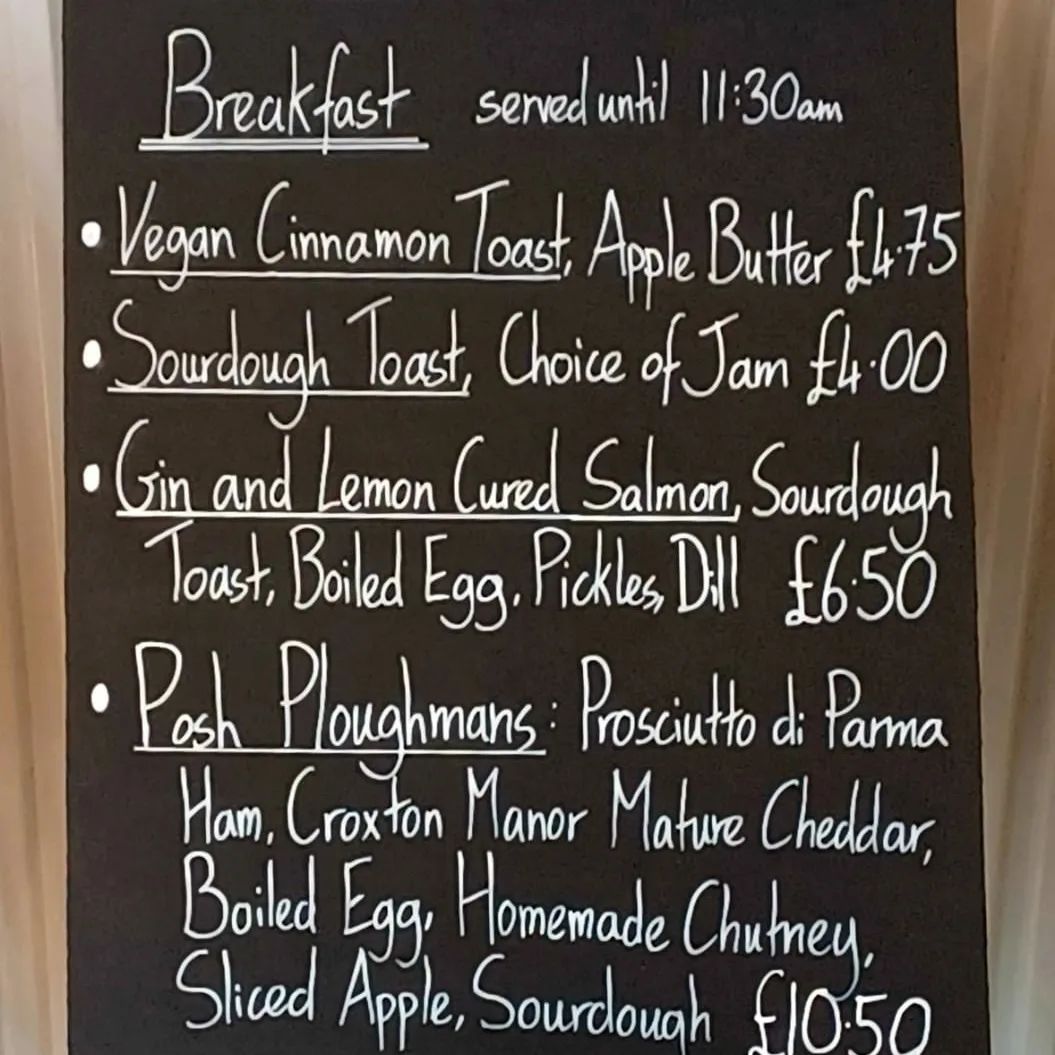 Breakfast served until 11:30am
• Vegan Cinnamon Toast, Apple Butter £4.75
• Sourdough Toast, Choice of Jam £4.00
• Gin and Lemon Cured Salmon, Sourdough
Toast, Boiled Egg, Pickles, Dill £6.50
• Posh Ploughmans: Prosciutto di Parma
Ham, Croxton Manor Mature Cheddar,
Boiled Egg, Homemade Chutney,
Sliced Apple, Sourdough £10.50